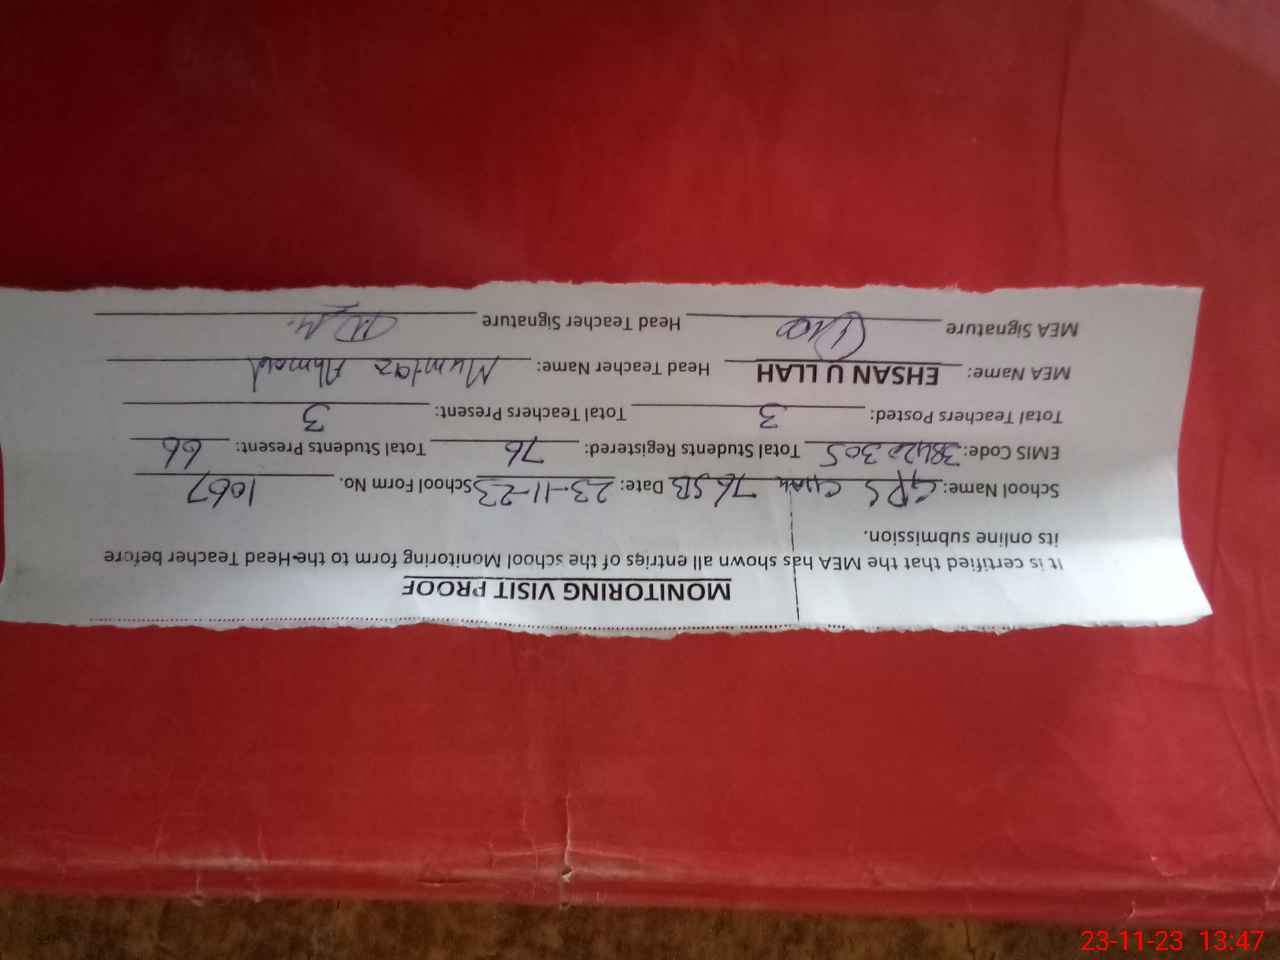 MONITORING VISIT PROOF
It is certified that the MEA has shown all entries of the school Monitoring form to the Head Teacher before
its online submission.
School Name: GPS Chak 76 SB Date: 23-11-23 School Form No. 1067
EMIS Code: 38420305 Total Students Registered: 76 Total Students Present: 66
Total Teachers Posted: 3 Total Teachers Present: 3
MEA Name: EHSAN U LLAH Head Teacher Name: Mumtaz Ahmad
MEA Signature Head Teacher Signature
23-11-23 13:47